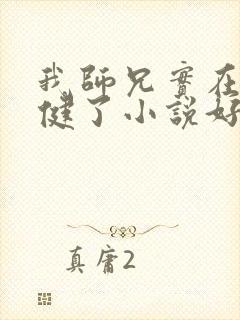 我師兄實在
健了小說好
真庸2